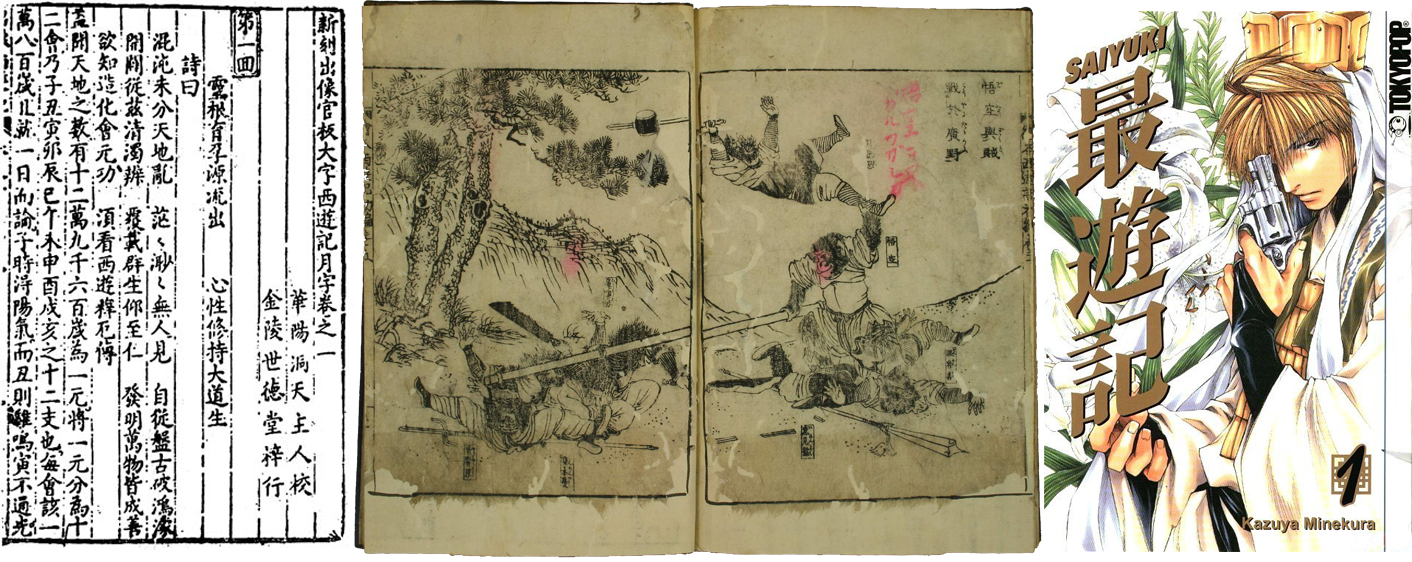 新刻出像官板大字西遊記月字卷之一
華陽洞天主人校
金陵世德堂梓行
第一回
靈根育孕源流出 心性修持大道生
詩曰
混沌未分天地亂 茫々渺々無人見 自從盤古破鴻濛
開闢從茲清濁辨 覆載群生仰至仁 發明萬物皆成善
欲知造化會元功 須看西遊釋厄傳
蓋聞天地之數有十二萬九千六百歲為一元將一元分為十
二會乃子丑寅卯辰巳午未申酉戌亥之十二支也每會該一
萬八百歲且就一日而論子時得陽氣而丑則雞鳴寅不通光
悟空與賊
戰於廣野
悟空
SAIYUKI
最遊記
TOKYOPOP
1
Kazuya Minekura